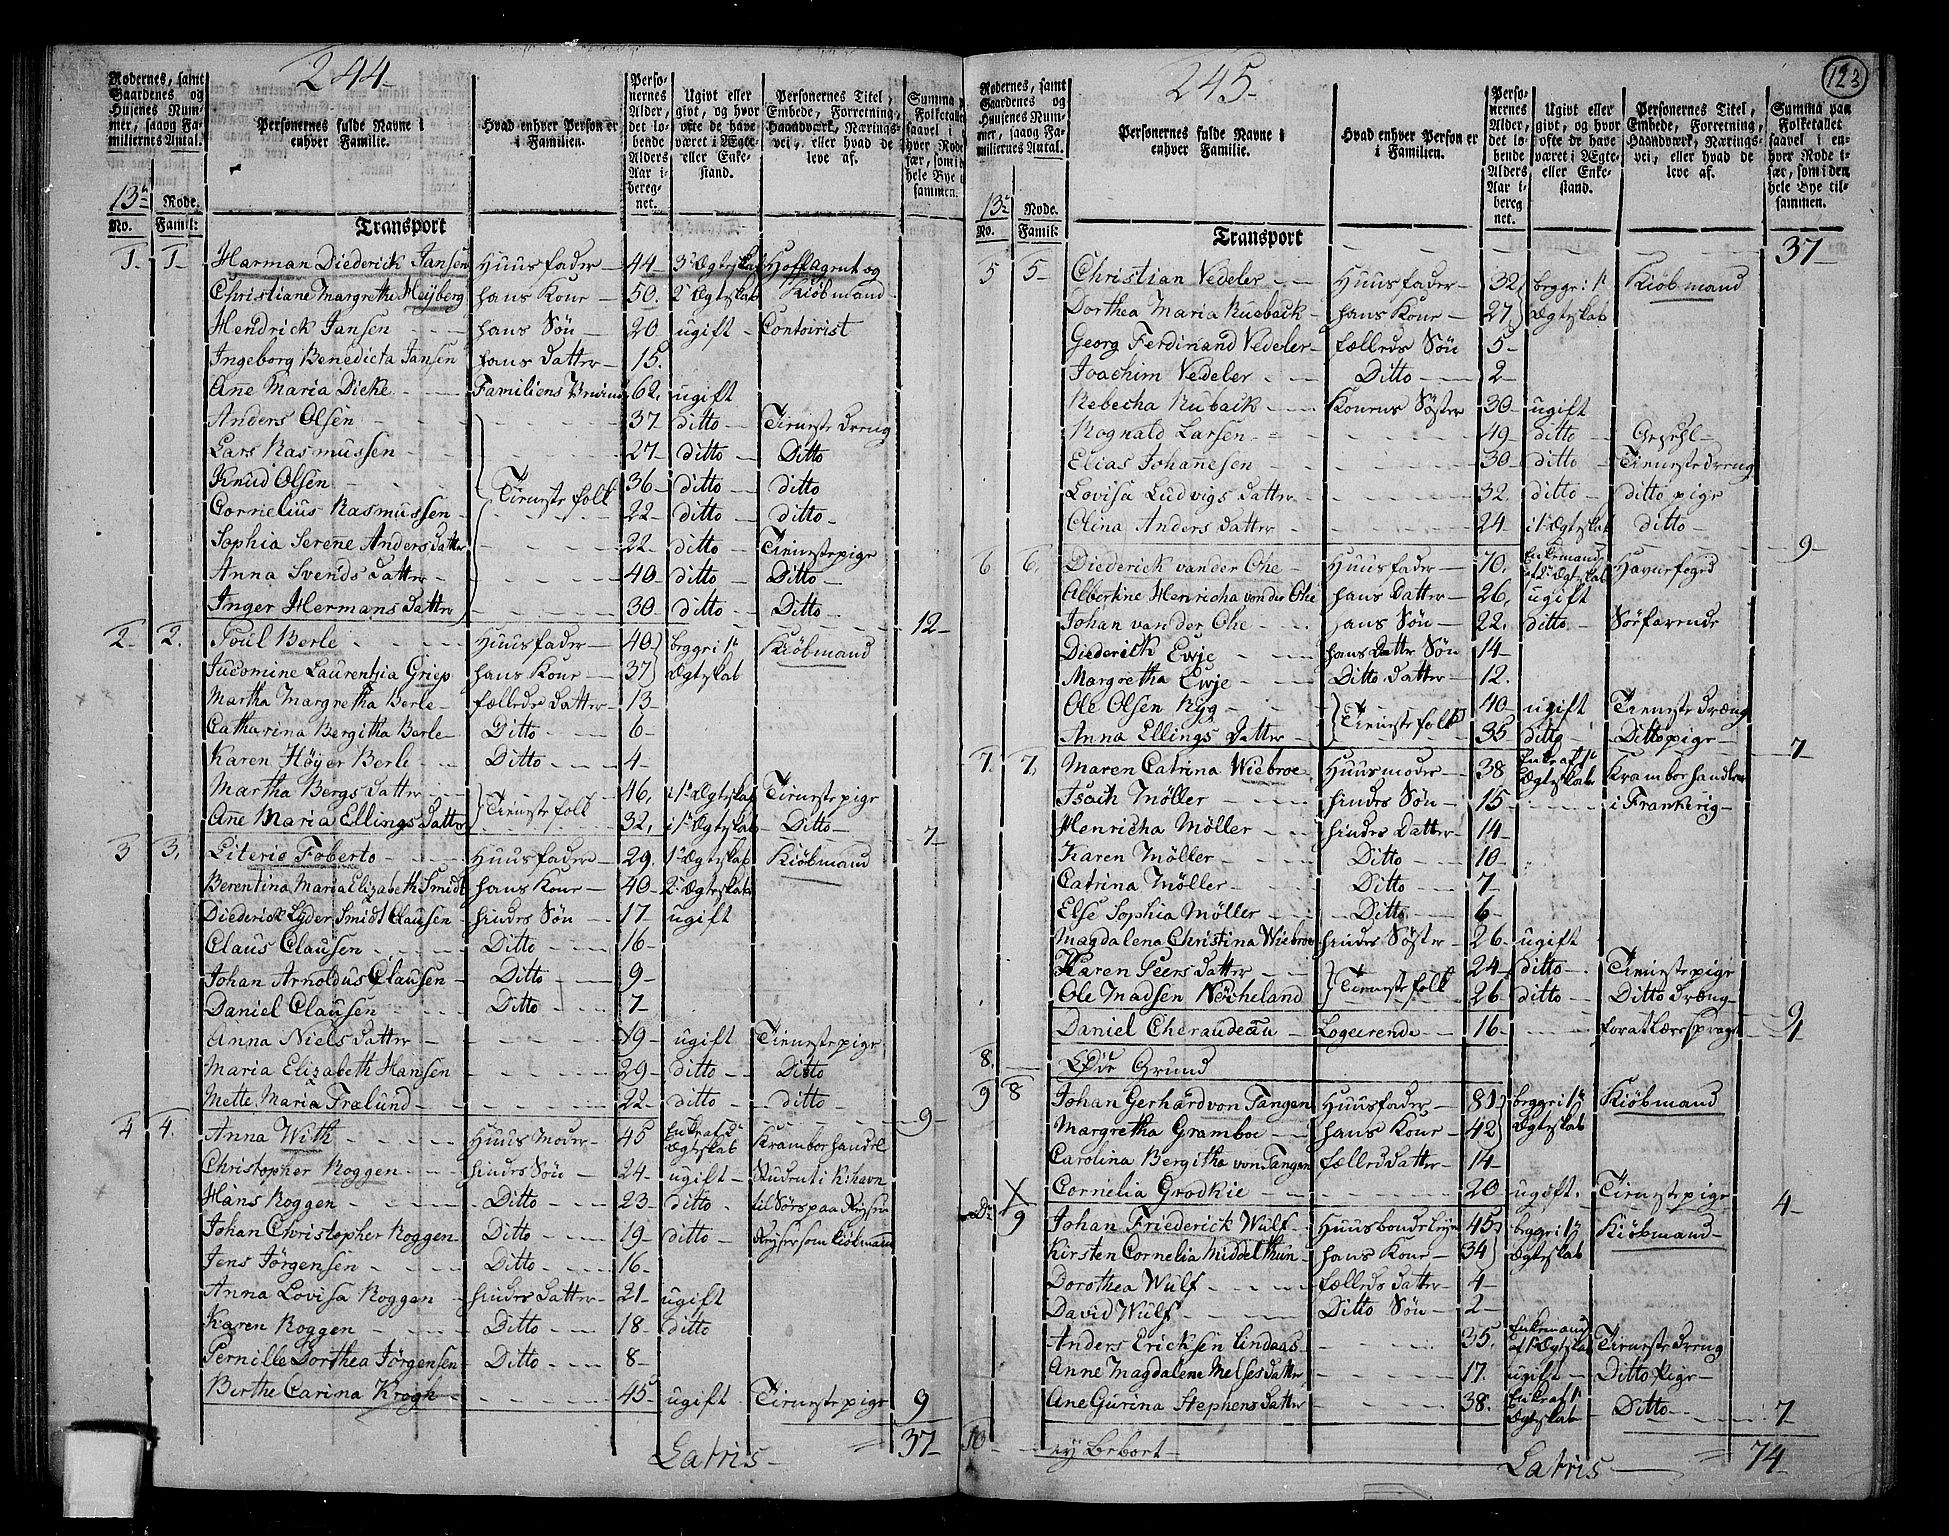 244
Rodernes, samt Gaardenes og Husenes Nummer, saaog Familiernes Antal.
Personernes fulde Navne i enhver Familie.
Hvad enhver Person er i Familien.
Personernes Alder, det løbende Alders Aar iberegnet.
Ugivt eller givt, og hvor ofte de have været i Ægte- eller Enkestand.
Personernes Titel, Embede, Forretning, Haandværk, Næringsvei, eller hvad de leve af.
13de Rode.
No. Famil:
Transport
1 1 Harman Diederick Jansen Huusfader 44 3de Ægteskab Hoffagent og
Christiane Margrethe Heiberg hans Kone 50. 2de Ægteskab Kiøbmand
Hendrick Jansen hans Søn 20 ugift Contoirist
Ingeborg Benedicta Jansen hans Datter 15.
Ane Maria Dicke Familiens 62. ugift
Anders Olsen 37 ditto Tieneste dreng
Lars Rasmussen 27 ditto Ditto
Knud Olsen Tieneste folk 36 ditto ditto
Cornelius Rasmussen 22 ditto ditto
Sophia Serene Anders datter 22 ditto Tienestepige
Anna Svends datter 40 ditto Ditto
Inger Hermans datter 30 ditto Ditto 12
2 2. Poul Berle Huusfader 40 begge i 1te Kiøbmand
Judomine Laurentia Griep hans Kone 37 Ægteskab
Martha Margretha Berle fælleds datter 13
Catharina Bergitha Berle Ditto 6
Karen Høyer Berle Ditto 4
Martha Bergs datter Tieneste folk 46. i 1te Ægteskab Tienestepige
Ane Maria Ellings datter 32. i 1te Ægteskab Ditto 7
3 3. Literio Foberto Huusfader 29. 1te Ægteskab Kiøbmand
Berentina Maria Elizabeth Smidt hans Kone 40 2de Ægteskab
Diederick Lyder Smidt Clausen hindes Søn 17 ugift
Claus Clausen Ditto 16
Johan Arnoldus Clausen Ditto 9
Daniel Clausen Ditto 7
Anna Niels datter 19 ugift Tienestepige
Maria Elizabeth Hansen 29 ditto Ditto
Mette Maria Frælund 22 ditto ditto 9
4 4. Anna With Huus Moder 45 Enke af 2de Ægteskab Kramboe handel
Christopher Roggen hindes Søn 24 ugift Student i Kiøbhavn
Hans Roggen Ditto 23 ditto til Søes paa Reyse
Johan Christopher Roggen Ditto 19 ditto Reyser som Kiøbmann
Jens Jörgensen Ditto 16
Anna Lovisa Roggen hindes datter 21 ugift
Karen Roggen Ditto 18 ditto
Pernille Dorthea Jörgensen Ditto 8
Berthe Carina Krogh 45 ugift Tienestepige 9
Latris 37
245
123
Rodernes, samt Gaardenes og Huusenes Nummer, saaog Familiernes Antal.
Personernes fulde Navne i enhver Familie.
Hvad enhver Person er i Familien.
Personernes Alder, det løbende Alders Aar iberegnet.
Ugivt eller givt, og hvor ofte de have været i Ægte- eller Enkestand.
Personernes Titel, Embede, Forretning, Haandværk, Næringsvei, eller hvad de leve af.
Summa paa Folketallet saavel i enhver Rode især, som i den hele Bye tilsammen.
13de Rode.
No. Famil:
Transport 37
5 5 Christian Vedeler Huusfader 32 begge i 1te Kiøbmand
Dorthea Maria Rueback hans Kone 27 Ægteskab
Georg Ferdinand Vedeler fælleds Søn 5
Joachim Vedeler Ditto 2
Rebecha Ruback Konens Søster 30 ugift
Rognald Larsen 49 ditto Gesell
Elias Johannesen 30 ditto Tieneste dreng
Lovisa Ludvigs datter 32. ditto ditto pige
Olina Anders datter 24 i 1te Ægteskab ditto 9
6 6. Diederick van der Ohe Huusfader 70. Enkemand af 2de Ægteskab Havnefoged
Albertine Henricha von der Ohe hans datter 26. ugift
Johan van der Ohe hans Søn 22. ditto Søefarende
Diederich Ewje hans datter Søn 14
Margretha Ewje Ditto datter 12.
Ole Olsen Rÿg Tieneste folk 40 ugift Tieneste dræng
Anna Ellings datter 35 ditto Ditto pige 7
7. 7. Maren Catrina Wiebroe Huusmoder 38 Enke af 1te Ægteskab Kramboe handler
Isach Møller hindes Søn 15 i
Henricha Møller hindes datter 14
Karen Møller Ditto 10
Catrina Møller Ditto 7
Else Sophia Møller Ditto 6
Magdalena Christina Wiebroe hindes Søster 26 ugift
Karen Peers datter Tieneste folk 24 ditto Tienestepige
Ole Madsen Nöcheland 26 ditto Ditto dræng 9
Daniel Cheraudeau Logeerende 16 for at lære sproget 1
8. Øde Grund
9 8 Johan Gerhard von Tangen Huusfader 81 begge i 1te Kiøbmand
Margretha Gramboe hans Kone 42 Ægteskab
Carolina Bergitha von Tangen fælled datter 14
Cornelia Grodkie 20 ugift. Tienestepige 4
Do 9 Johan Friederick Wulf 45 begge i 1te Kiøbmand
Kirsten Cornelia Middelthun hans Kone 34 Ægteskab
Dorothea Wulf fælleds datter 4
David Wulf Ditto Søn 2
Anders Ericksen Lindaas 35. Enkemand af 1te Ægteskab Tieneste dreng
Anne Magdalene Melses datter 17. ugift Ditto Pige
Ane Gurina Stephens datter 38. Enke af 1te Ægteskab Ditto 7
10 ey beboet
Latris 74